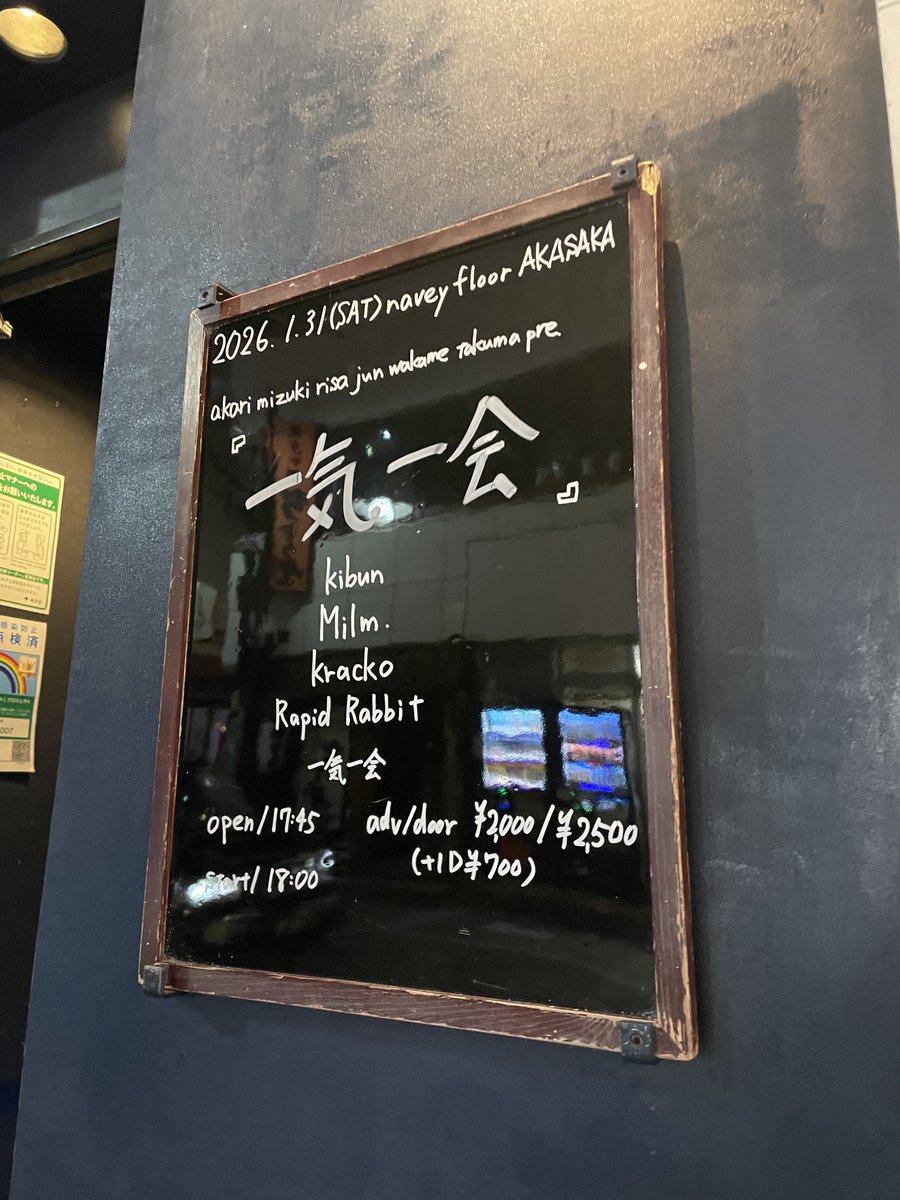 2026. 1. 31(SAT) navey floor AKASAKA
akari mizuki risa jun wakame takuma pre.
『一気一会』
kibun
Milm.
kracko
Rapid Rabbit
一気一会
open/17:45 adv/door ¥2,000/¥2,500
(+1D¥700)
start/18:00
止マナーへの
をお願いいたします。
感染防止
点検済